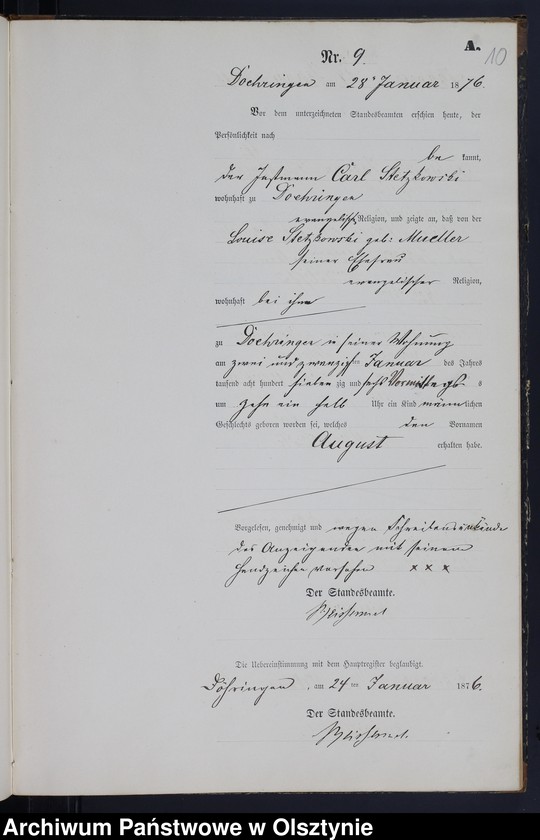 A.
10
Nr. 9.
Doehringen am 28ᵗ Januar 1876.
Vor dem unterzeichneten Standesbeamten erschien heute, der
Persönlichkeit nach
be kannt,
der Instmann Carl Stetzkowski
wohnhaft zu Doehringen
evangelisch Religion, und zeigte an, daß von der
Louise Stetzkowski geb: Mueller
seiner Ehefrau
evangelischer Religion,
wohnhaft bei ihm
zu Doehringen in seiner Wohnung
am zwei und zwanzigsten Januar des Jahres
tausend acht hundert sieben zig und sechs Vormittags
um zehn ein halb Uhr ein Kind männlichen
Geschlechts geboren worden sei, welches den Vornamen
August erhalten habe.
Vorgelesen, genehmigt und wegen Schreibensunkunde
des Anzeigenden mit seinem
Handzeichen versehen x x x
Der Standesbeamte.
Die Uebereinstimmung mit dem Hauptregister beglaubigt.
Döhringen, am 24 ten Januar 1876.
Der Standesbeamte.
Archiwum Państwowe w Olsztynie